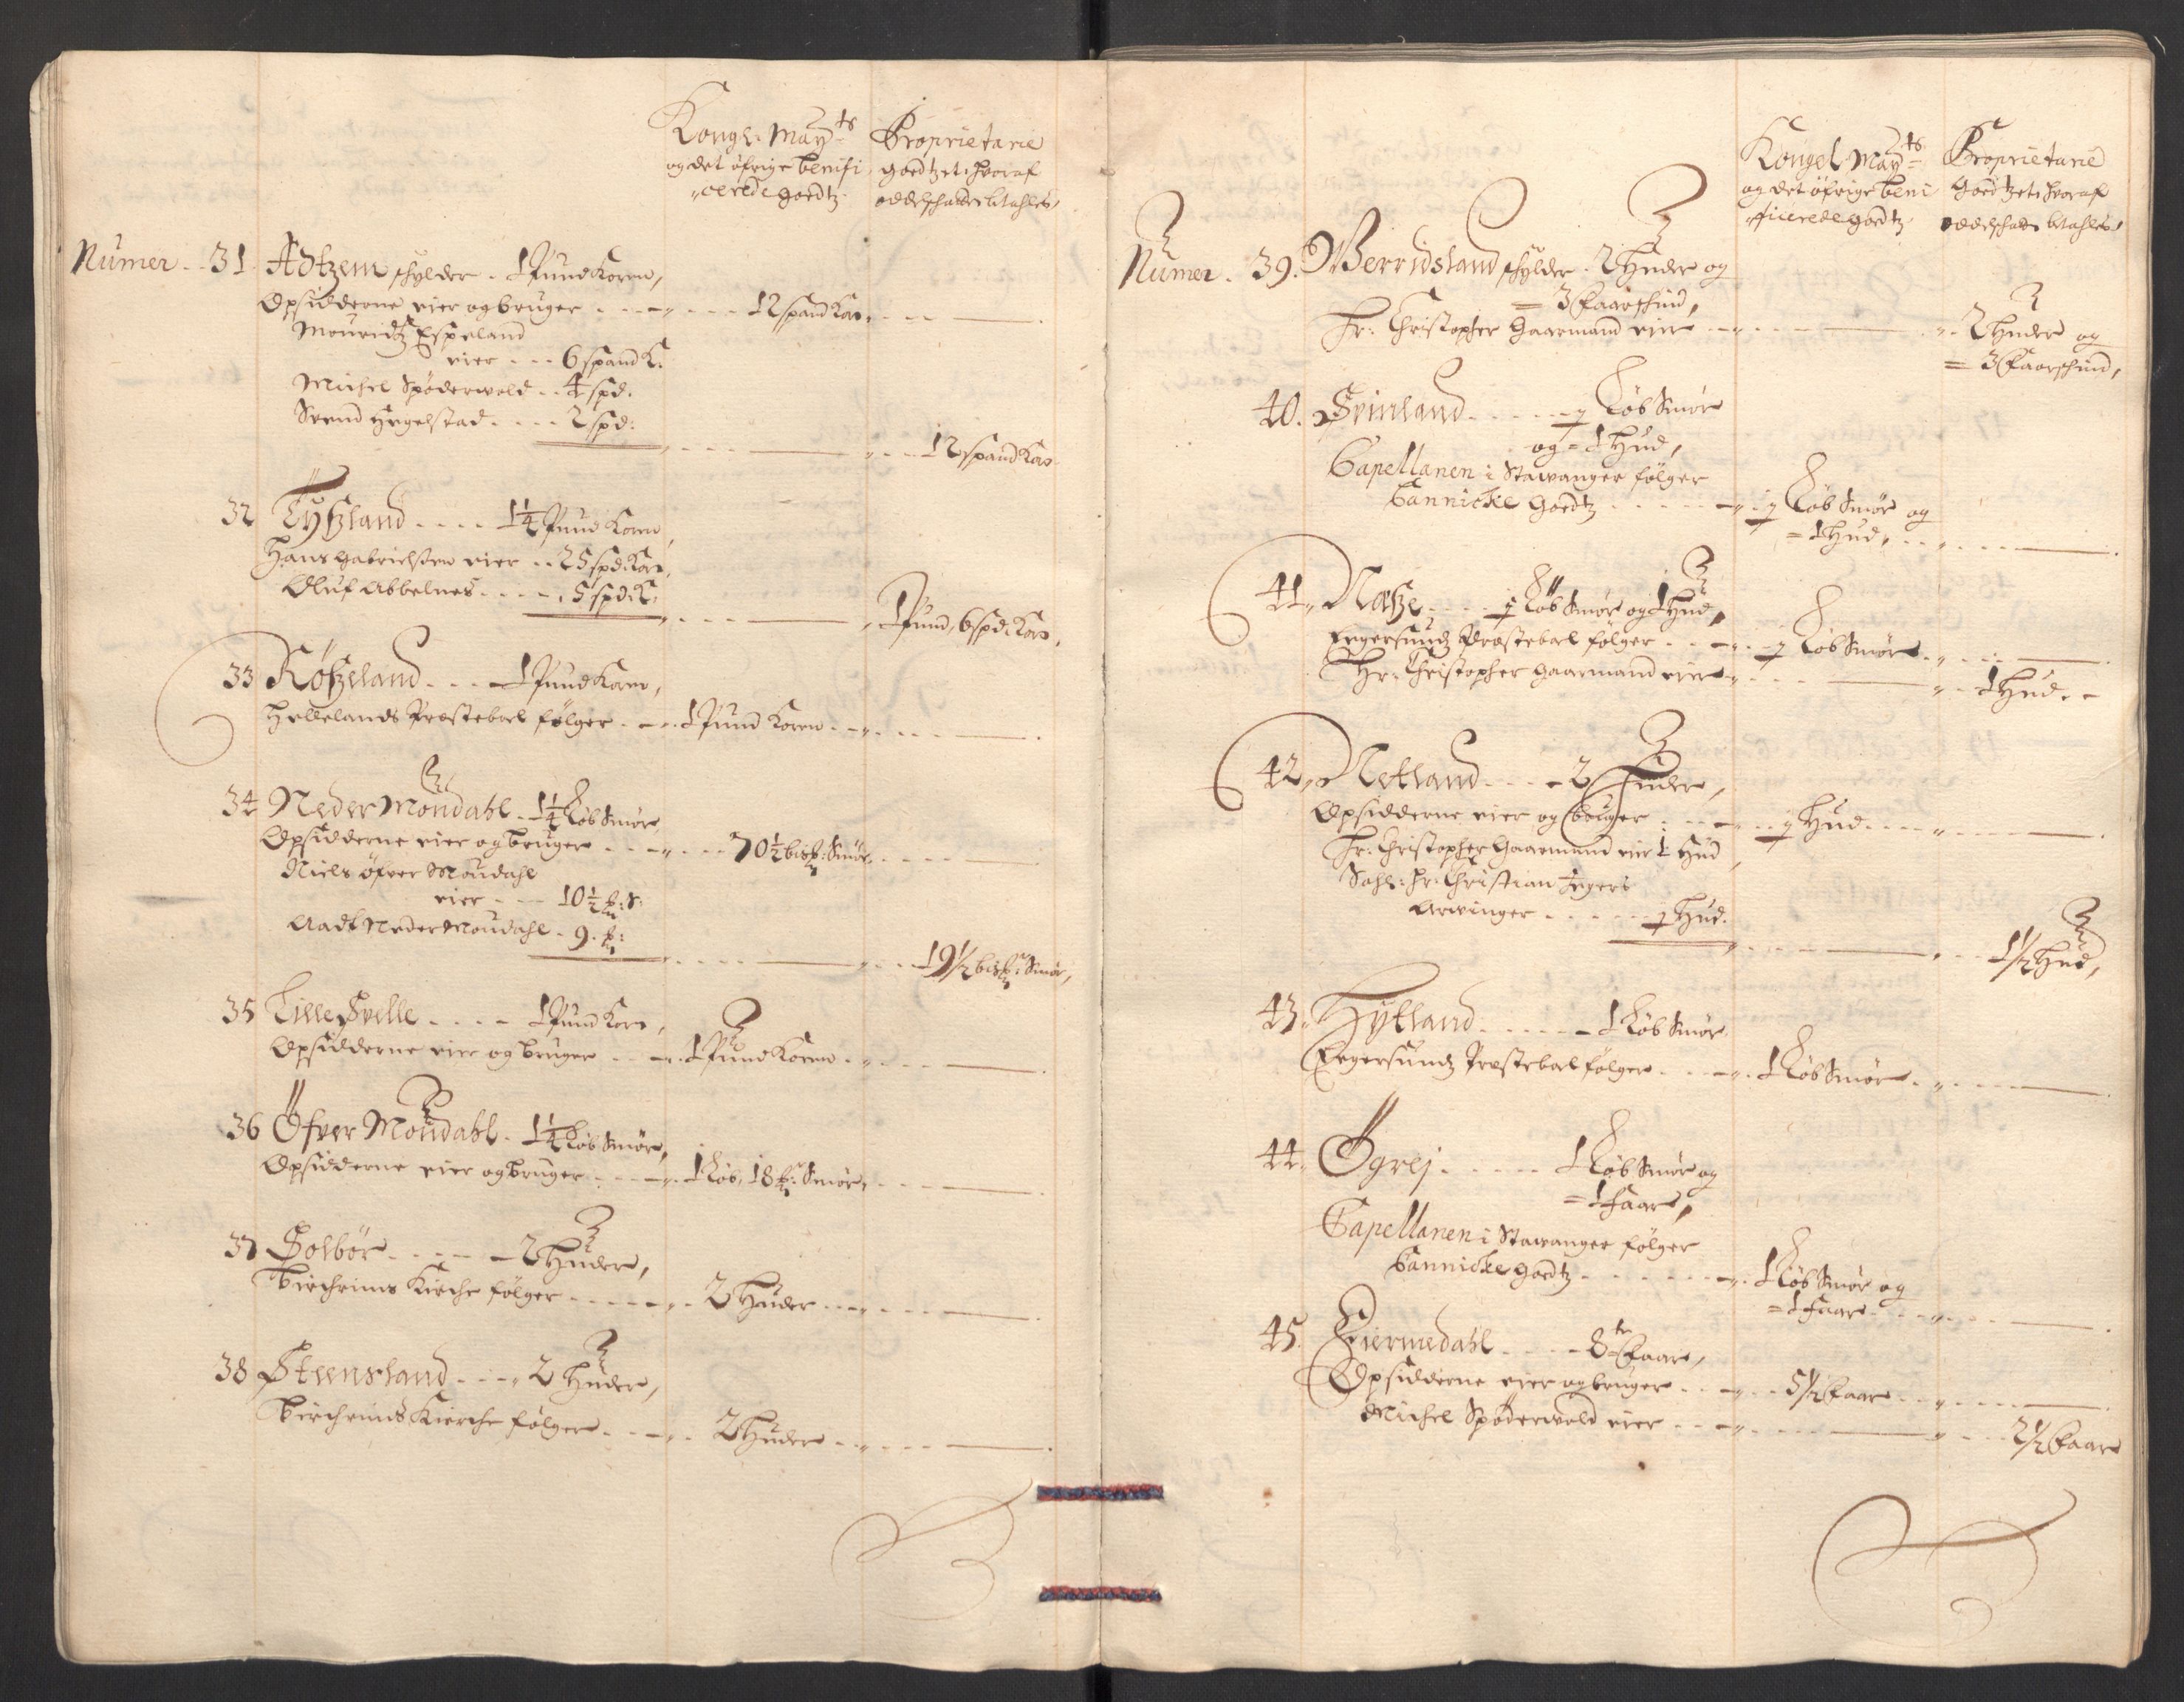 Kongl: Mayts
og det öfrige benifi
"cerede goedtz
Proprietarie
goedtzet hvoraf
oddelschatten bitahles,
Numer 31 Adtzem schylder 1 Pund Koren,
Opsidderne eier og bruger 12 spand Kor
Mouridtz Espeland
eier 6 spand K:
Michel Spöderwold 4 spd:
Svend Hegelstad 2 spd:
12 spand Kor
32 Tytzland 1¼ Pund Koren,
Hans Gabrielsen eier 25 spd: Kor
Oluf Abbelnes 5 spd: K:
1 Pund, 6 spd: Kor,
33 Rötzeland 1 Pund Koren,
Hellelands Præstebol følger 1 Pund Koren
34 Neder Moudahl 1¼ Løb Smör
Opsidderne eier og bruger 70½ bisß: Smör
Niels öfver Moudahl
eier 10½ ß: S:
Aadt Neder Moudahl 9 ß:
19½ bisß: Smör,
35 Lille Svelle 1 Pund Kor,
Opsidderne eier og bruger 1 Pund Koren
36 Öfver Moudahl 1¼ Løb Smör,
Opsidderne eier og bruger 1 Løb, 18 ß: Smör,
37 Solbör 2 Huder,
Birchrims Kirche følger 2 Huder
38 Steensland 2 Huder,
Birchrims Kierche følger 2 Huder
Kongel Mayts
og det öfrige beni
"ficerede goedtz
Proprietarie
Goedtzet hvoraf
oddelschatte bitahles,
Numer 39. Werridsland schylder 2 Huder og
= 3 Faarschind,
Hr: Christopher Gaarmand eier 2 Huder og
= 3 Faarschind,
40. Svinland ½ Løb Smör
og = 1 Hud,
Capellanen i Stawanger følger
Cannicke Goedtz ½ Løb Smör og
= 1 Hud,
41 Netze ½ Løb Smör og 1 Hud,
Eegersundz Præstebol følger ½ Løb Smör
Hr: Christopher Gaarmand eier 1 Hud
42 Netland 2 Huder,
Opsidderne eier og bruger ½ Hud
Hr: Christopher Gaarmand eier 1 Hud
Sahl: Hr: Christian Jegers
Arvinger ½ Hud.
1½ Hud,
43 Hytland 1 Løb Smör
Eegersundz Præstebol følger 1 Løb Smör
44 Ögrej 1 Løb Smör og
= 1 Faar,
Capellanen i Stawanger følger
Cannicke goedtz 1 Løb Smör og
= 1 Faar
45 Eiermedahl 8 Faar,
Opsidderne eier og bruger 5½ Faar
Michel Spöderwold eier 2½ Faar